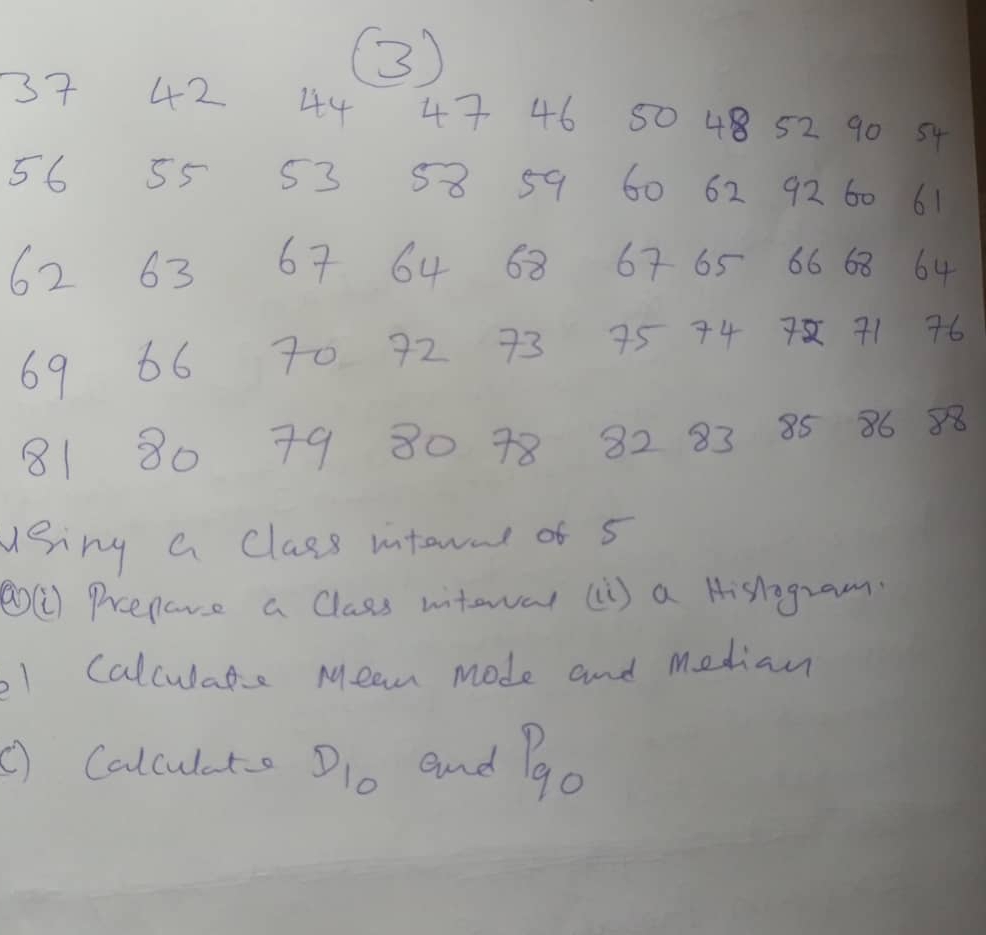 (3)
37 42 44 47 46 50 48 52 90 54
56 55 53 58 59 60 62 92 60 61
62 63 67 64 68 67 65 66 68 64
69 66 70 72 73 75 74 72 71 76
81 80 79 80 78 82 83 85 86 88
Using a Class interval of 5
a)(i) Prepare a Class interval (ii) a Histogram.
Calculate Mean Mode and Median
c) Calculate D10 and P90